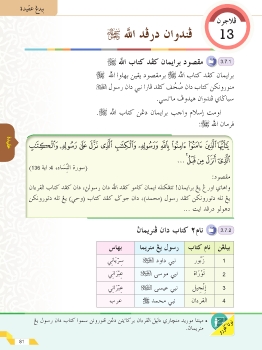 بيدڠ عقيدة
ڤلاجرن
13
ڤندوان درڤد الله ﷻ
3.7.1 مقصود برايمان كڤد كتاب الله ﷻ
برايمان كڤد كتاب الله ﷻ برمقصود يقين بهاوا الله ﷻ
منورونكن كتاب دان صحف كڤد ڤارا نبي دان رسول
سباݢاي ڤندوان هيدوڤ مأنسي.
اومت إسلام واجب برايمان دڠن كتاب الله ﷻ.
فرمان الله ﷻ:
يَٰٓأَيُّهَا ٱلَّذِينَ ءَامَنُوٓا۟ ءَامِنُوا۟ بِٱللَّهِ وَرَسُولِهِۦ وَٱلْكِتَٰبِ ٱلَّذِى نَزَّلَ عَلَىٰ رَسُولِهِۦ وَٱلْكِتَٰبِ
ٱلَّذِىٓ أَنزَلَ مِن قَبْلُ ...
(سورة النساء، 4: أية 136)
مقصود:
واهاي اورڠ يڠ برايمان! تتڤكنله ايمان كامو كڤد الله دان رسولڽ، دان كڤد كتاب القرءان
يڠ تله دتورونكن كڤد رسولڽ (محمد)، دان جوݢ كڤد كتاب (وحي) يڠ تله دتورونكن
دهولو درڤد ايت ...
3.7.2 نام٢ كتاب دان ڤنريماڽ
بيلڠن نام كتاب رسول يڠ منريما بهاس
1 زبور نبي داود سرياني
2 توراة نبي موسى عبراني
3 إنجيل نبي عيسى عبراني
4 القرءان نبي محمد ﷺ عرب
81